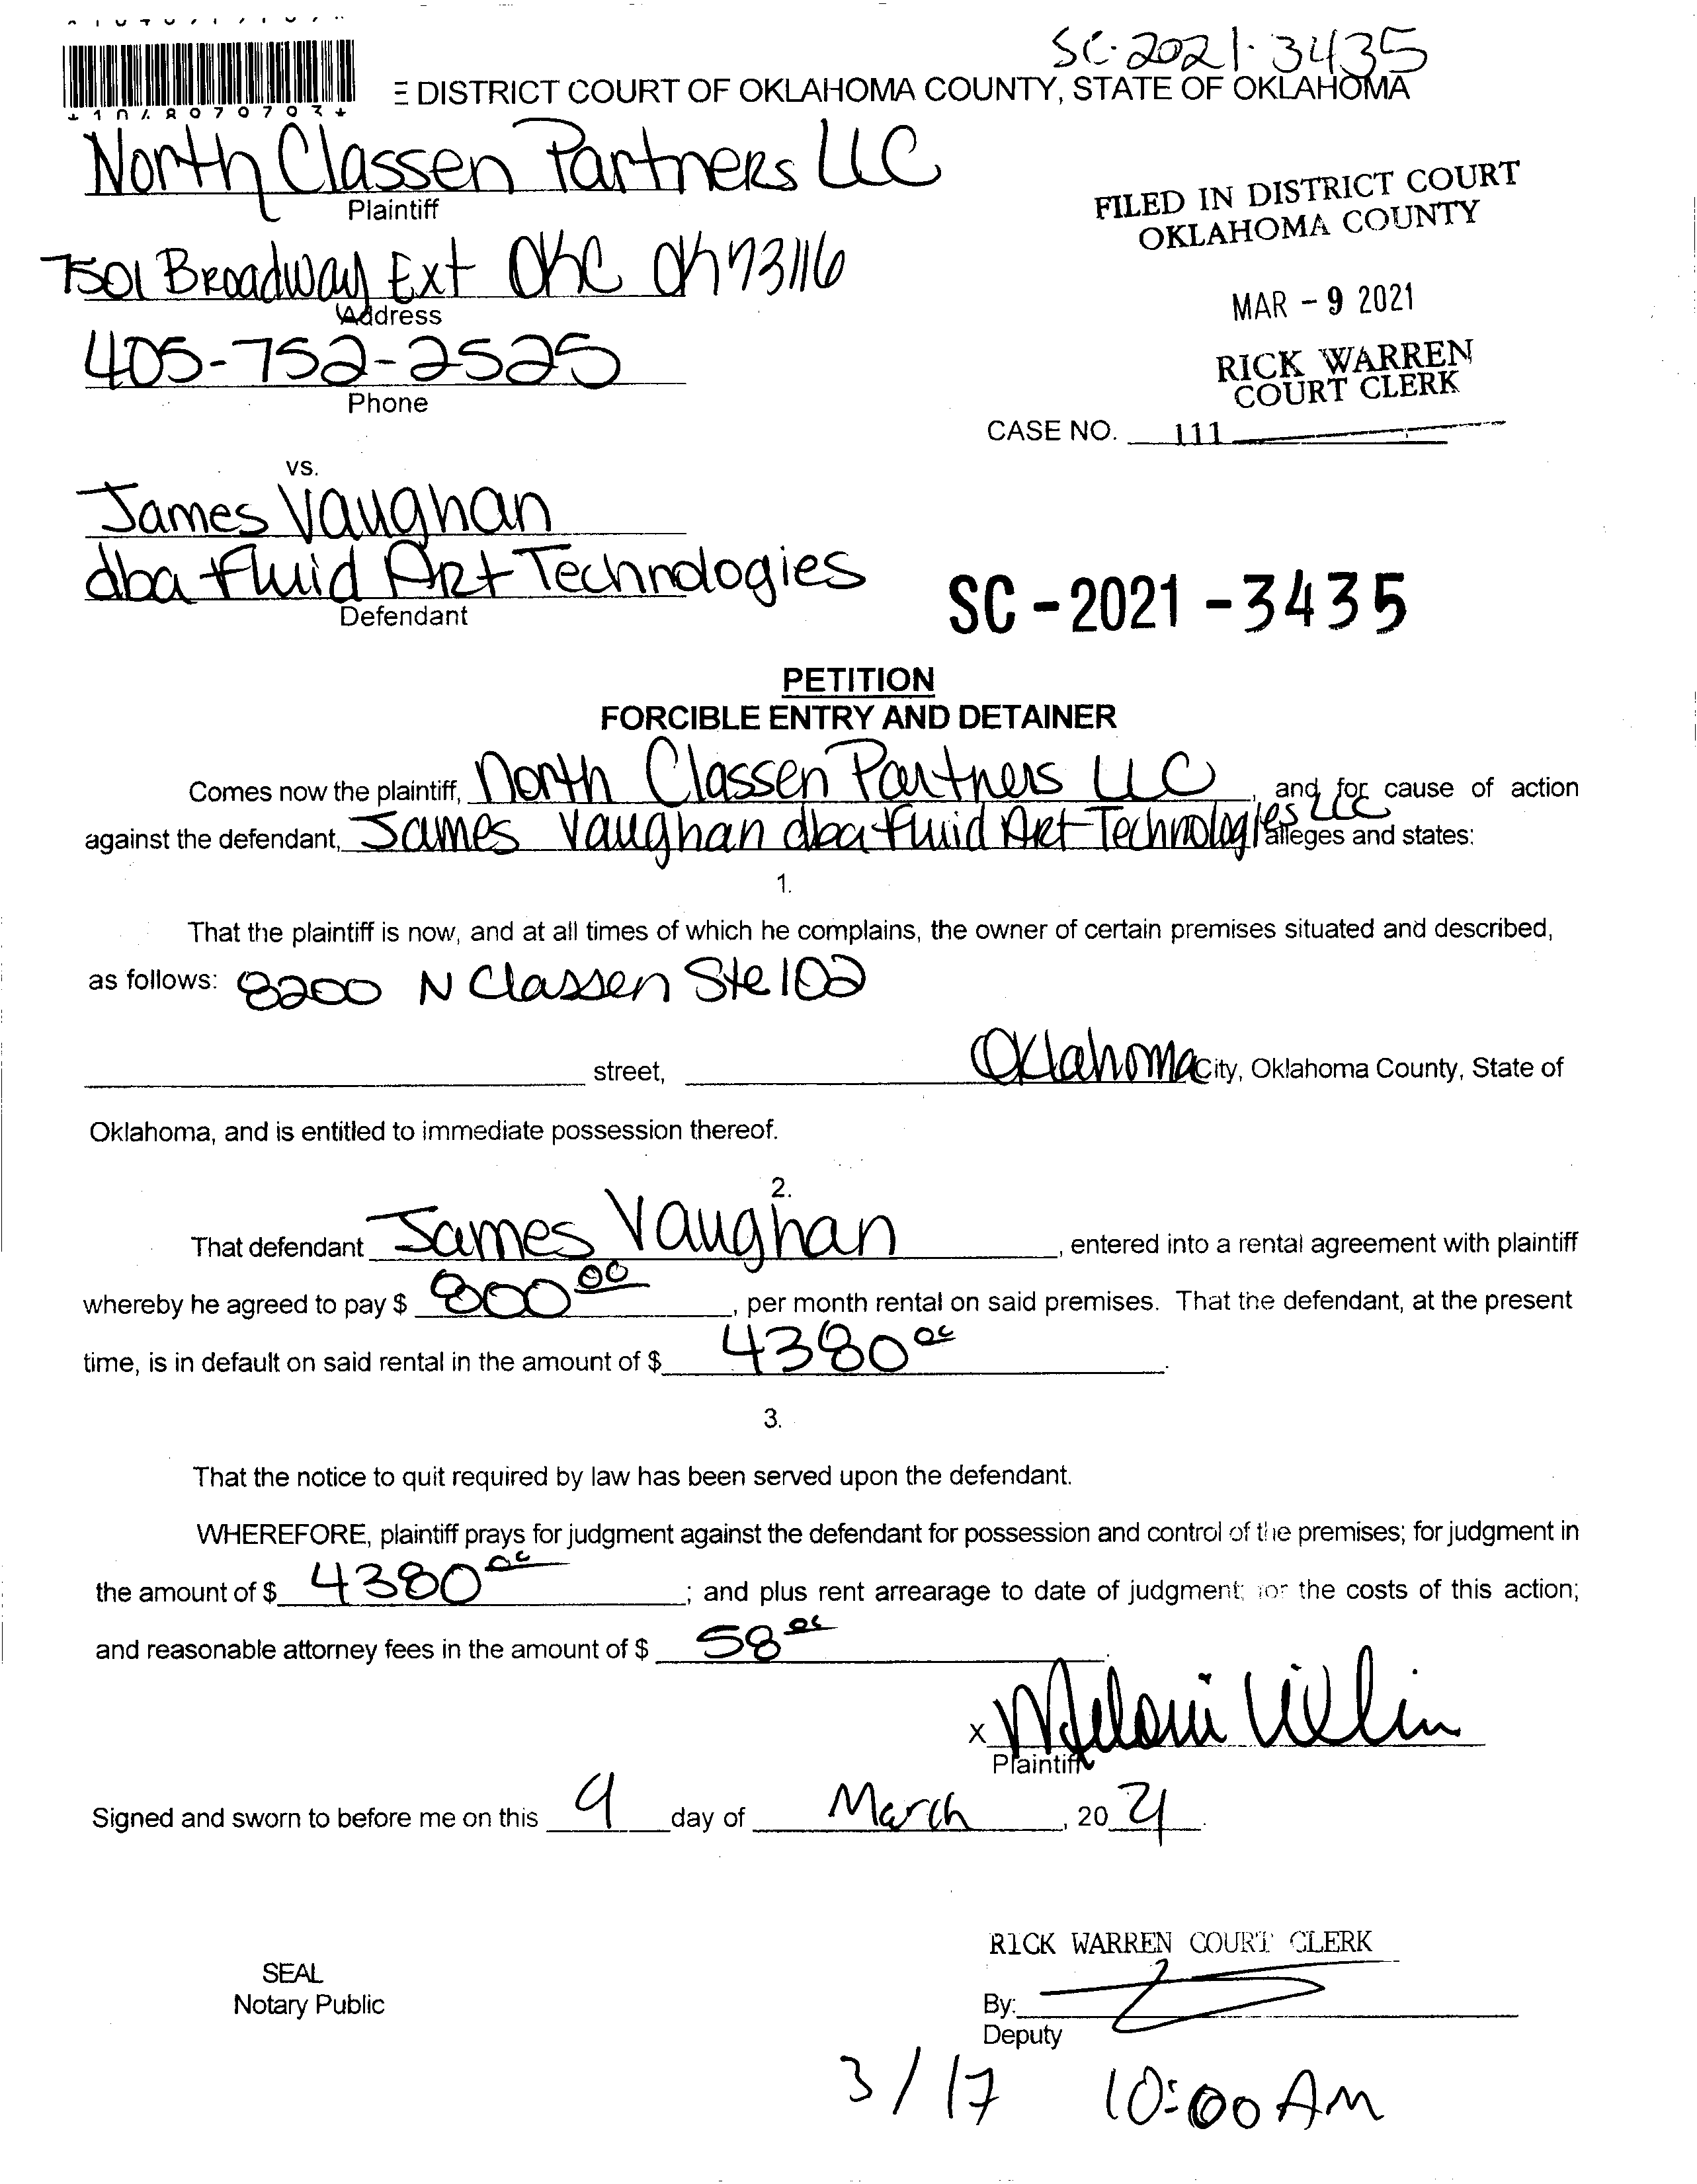 SC-2021-3435
DISTRICT COURT OF OKLAHOMA COUNTY, STATE OF OKLAHOMA
North Classen Partners LLC
Plaintiff
FILED IN DISTRICT COURT
OKLAHOMA COUNTY
7501 Broadway Ext OKC OK 73116
Address
MAR - 9 2021
405-752-2525
Phone
RICK WARREN
COURT CLERK
CASE NO. 111
vs.
James Vaughan
dba Fluid Art Technologies
Defendant
SC - 2021 - 3435
PETITION
FORCIBLE ENTRY AND DETAINER
Comes now the plaintiff, North Classen Partners LLC, and for cause of action
against the defendant, James Vaughan dba Fluid Art Technologies LLC alleges and states:
1.
That the plaintiff is now, and at all times of which he complains, the owner of certain premises situated and described,
as follows: 8200 N Classen Ste 102
street, Oklahoma City, Oklahoma County, State of
Oklahoma, and is entitled to immediate possession thereof.
2.
That defendant James Vaughan, entered into a rental agreement with plaintiff
whereby he agreed to pay $ 800 00, per month rental on said premises. That the defendant, at the present
time, is in default on said rental in the amount of $ 4380 00.
3.
That the notice to quit required by law has been served upon the defendant.
WHEREFORE, plaintiff prays for judgment against the defendant for possession and control of the premises; for judgment in
the amount of $ 4380 00; and plus rent arrearage to date of judgment; for the costs of this action;
and reasonable attorney fees in the amount of $ 58 00.
x
Plaintiff
Signed and sworn to before me on this 9 day of March, 20 21.
RICK WARREN COURT CLERK
SEAL
Notary Public
By:
Deputy
3/17 10:00 AM